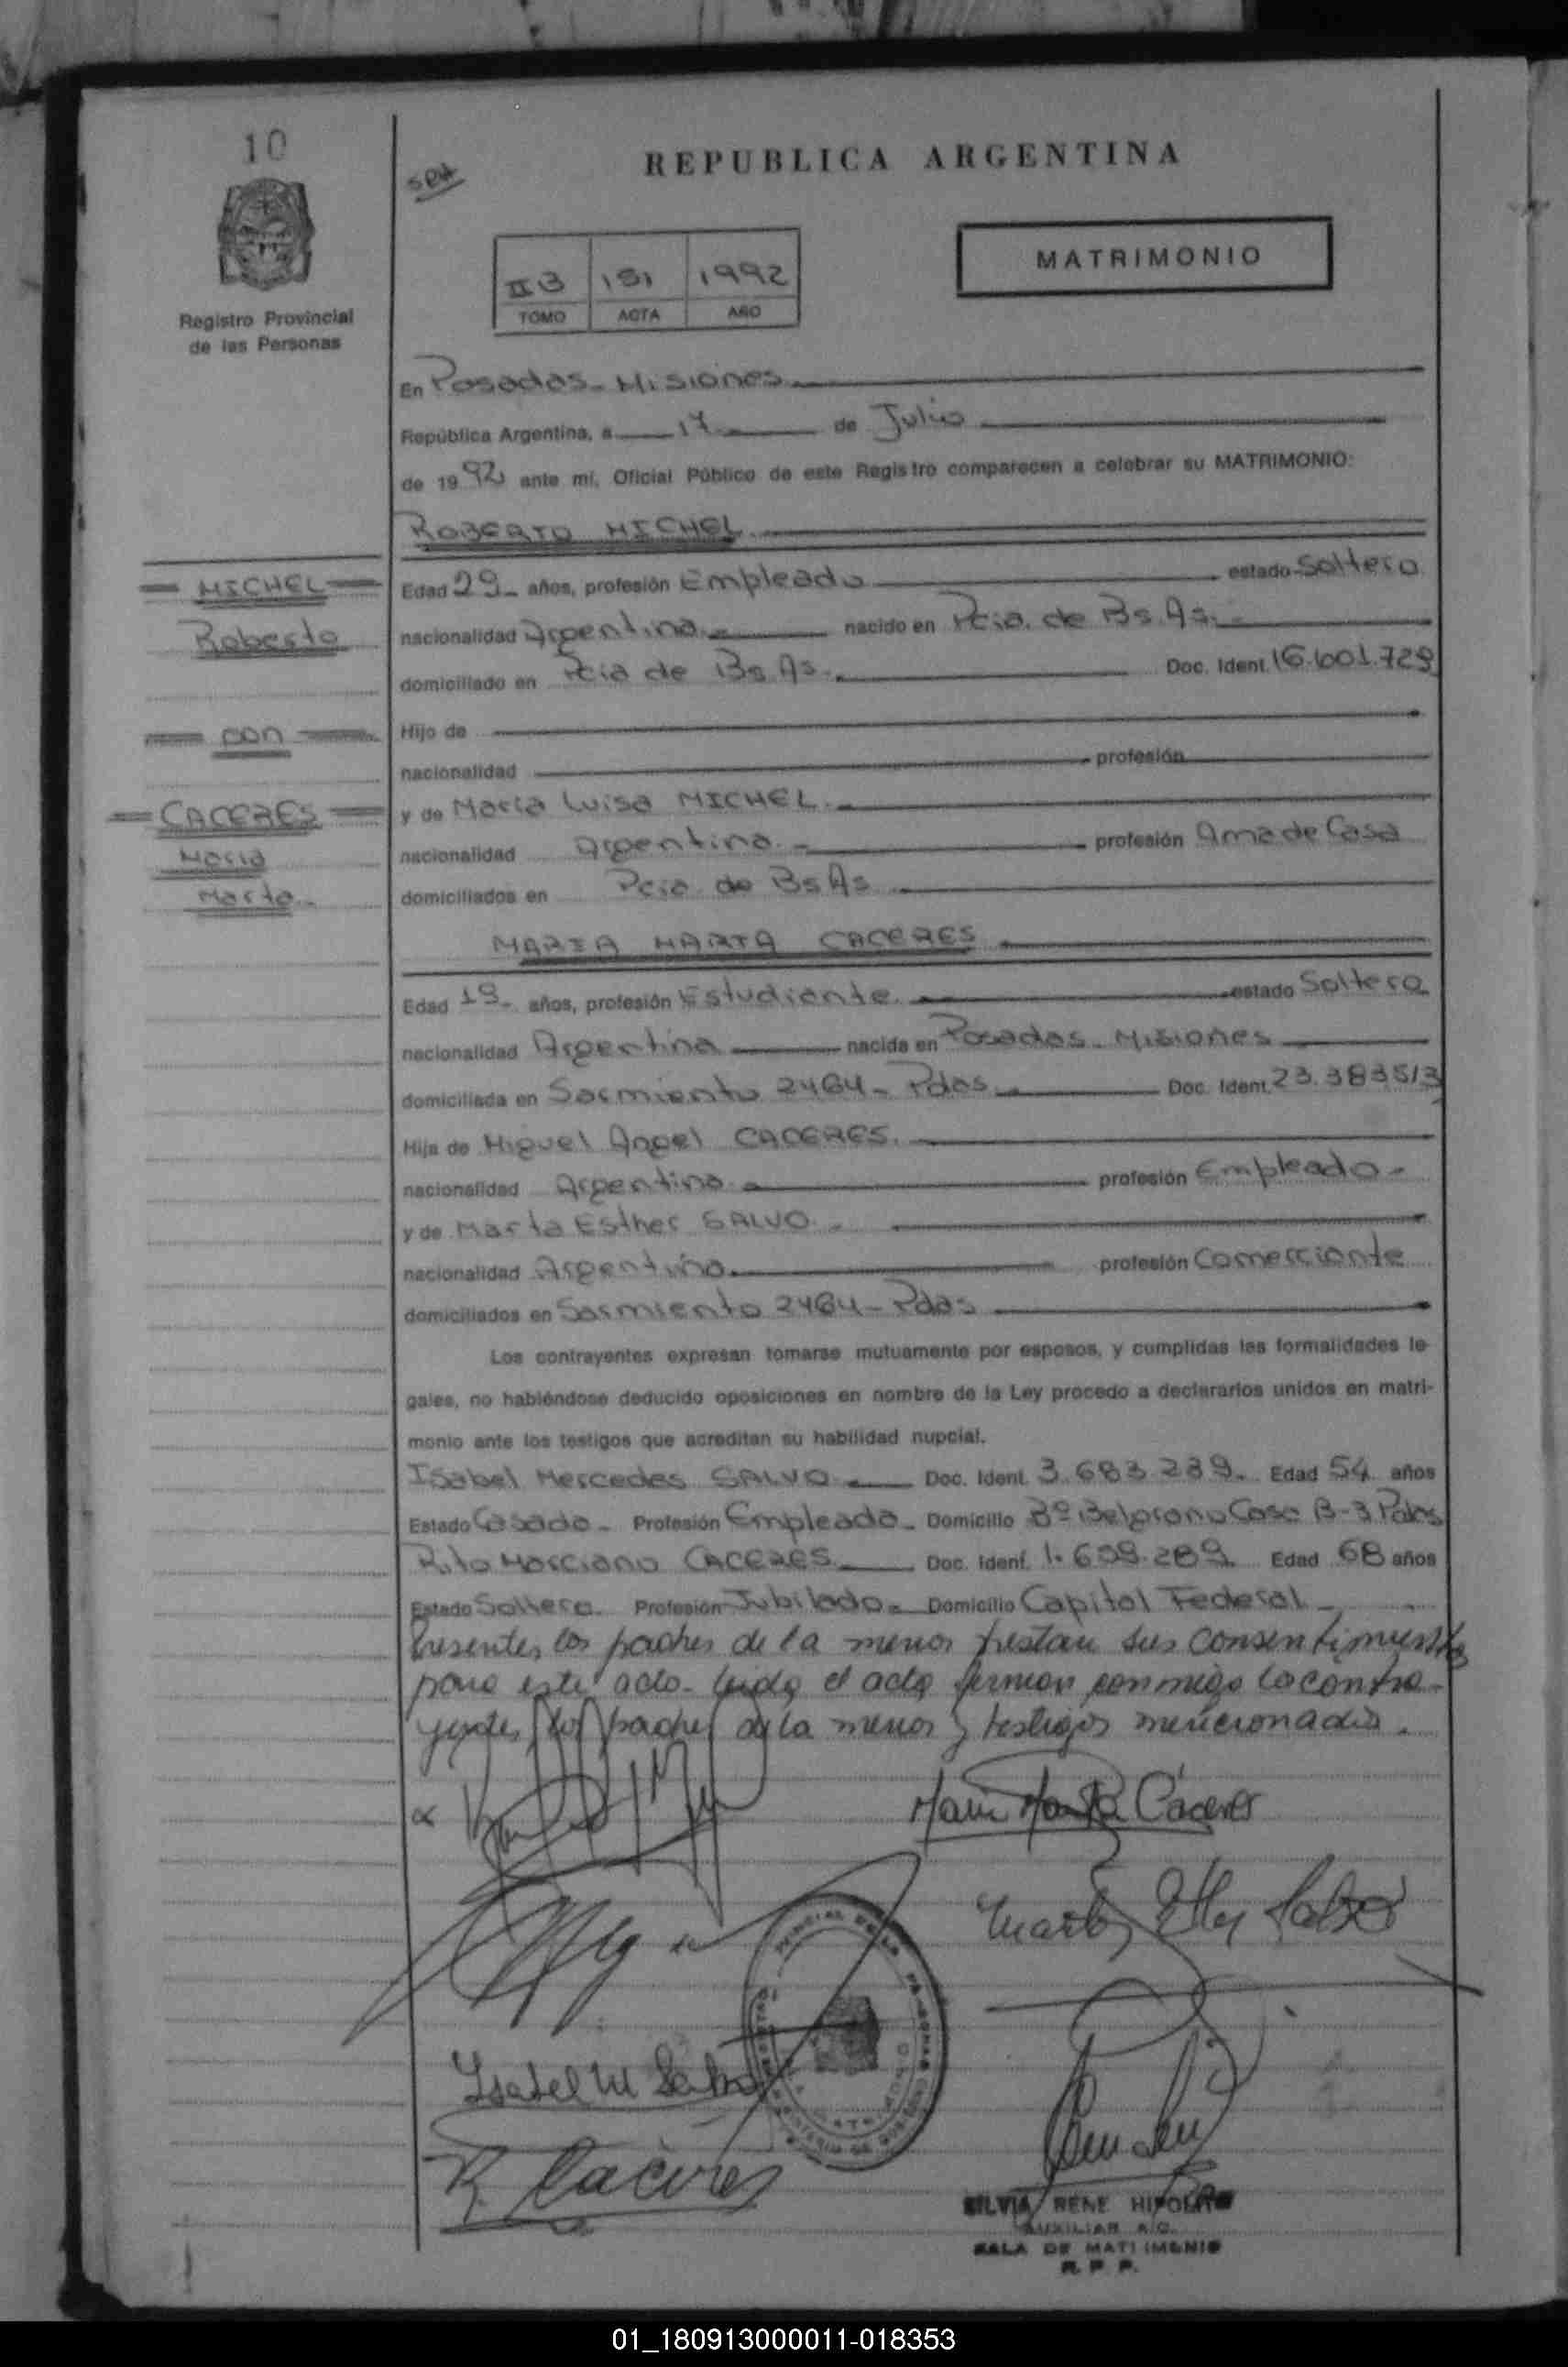 10
REPUBLICA ARGENTINA
MATRIMONIO
II B 151 1992
TOMO ACTA AÑO
Registro Provincial
de las Personas
En Posadas - Misiones
República Argentina, a 17 de Julio
de 1992 ante mí, Oficial Público de este Registro comparecen a celebrar su MATRIMONIO:
ROBERTO MICHEL
MICHEL
Roberto
con
CACERES
Maria
Marta
Edad 29 años, profesión Empleado estado Soltero
nacionalidad Argentina nacido en Pcia. de Bs. As.
domiciliado en Pcia de Bs As. Doc. Ident. 16.601.729
Hijo de
nacionalidad profesión
y de Maria Luisa MICHEL
nacionalidad Argentina profesión Ama de Casa
domiciliados en Pcia de Bs As
MARIA MARTA CACERES
Edad 19 años, profesión Estudiante estado Soltera
nacionalidad Argentina nacida en Posadas - Misiones
domiciliada en Sarmiento 2464 - Pdas Doc. Ident. 23.383513
Hija de Miguel Angel CACERES.
nacionalidad Argentina profesión Empleado
y de Marta Esther SALVO
nacionalidad Argentina profesión Comerciante
domiciliados en Sarmiento 2464 - Pdas
Los contrayentes expresan tomarse mutuamente por esposos, y cumplidas las formalidades le-
gales, no habiéndose deducido oposiciones en nombre de la Ley procedo a declararlos unidos en matri-
monio ante los testigos que acreditan su habilidad nupcial.
Isabel Mercedes SALVO Doc. Ident. 3.683.239 Edad 54 años
Estado Casada - Profesión Empleada - Domicilio Bº Belgrano Casa B-3 Pdas
Rito Marciano CACERES Doc. Ident. 1.659.289 Edad 68 años
Estado Soltero Profesión Jubilado - Domicilio Capital Federal
Presentes los padres de la menor prestan sus consentimientos
para este acto - leida el acta firman conmigo los contra-
yentes, los padres de la menor y testigos mencionados.
Maria Marta Cáceres
Marta Esther Salvo
Isabel M Salvo
R. Cáceres
SILVIA RENE HIPOLITO
AUXILIAR A/C.
SALA DE MATRIMONIO
R. P. P.
01_180913000011-018353